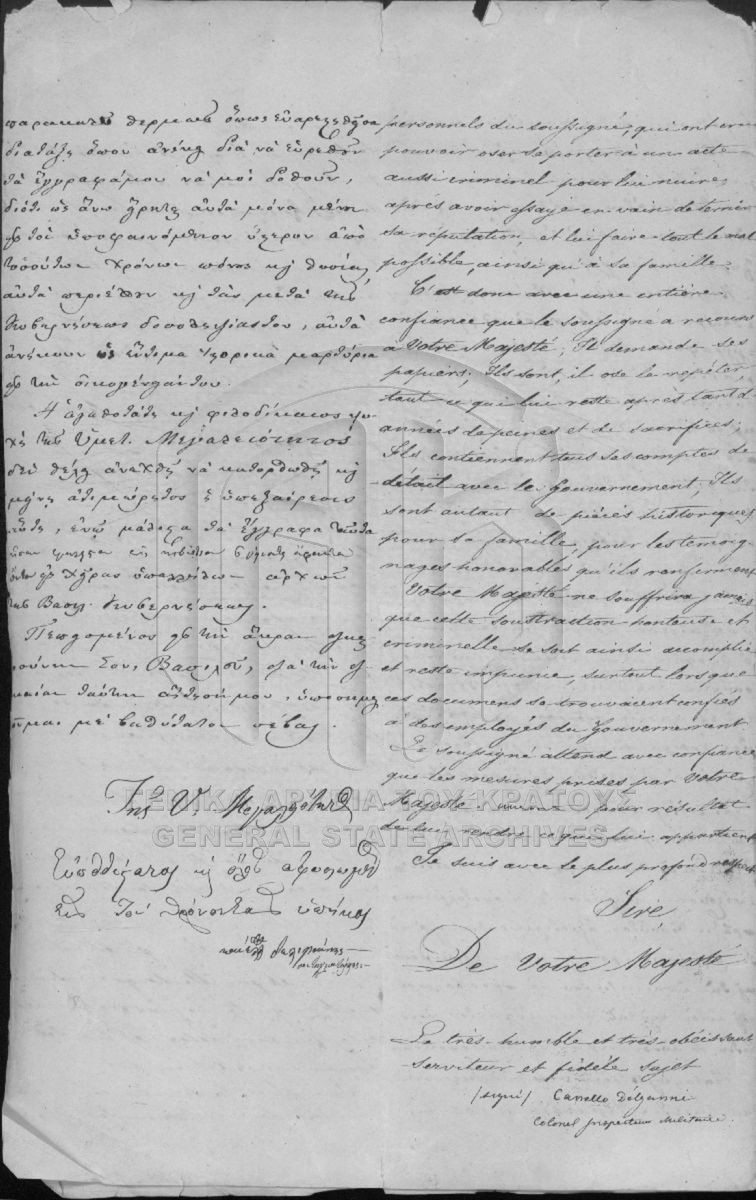 παρακαλῶ θερμῶς ὅπως εὐαρεστηθῆτε
διατάξῃ ὅπου ἀνήκει διὰ νὰ εὑρεθοῦν
τὰ ἔγγραφά μου νὰ μοὶ δοθοῦν,
διότι ὡς ἄνω εἴρηται αὐτὰ μόνα μένουν
ὕστερον ἀπὸ
τοσούτων χρόνων πόνους καὶ θυσίας
αὐτὰ περιέχουν καὶ τὰς μετὰ τῆς
Κυβερνήσεως δοσοληψίας του, αὐτὰ
ἀνήκουν ὡς ἔντιμα ἱστορικὰ μαρτύρια
εἰς τὴν οἰκογένειάν του.
Ἡ ἀγαθοτάτη καὶ φιλοδίκαιος ψυ-
χὴ τῆς Ὑμετ. Μεγαλειότητος
δὲν θέλει ἀνεχθῆ νὰ κατορθωθῇ καὶ
μείνῃ ἀτιμώρητος ἡ ὑπεξαίρεσις
αὕτη, ἐνῷ μάλιστα τὰ ἔγγραφα ταῦτα
ὑπαλλήλων
τῆς Βασιλ. Κυβερνήσεως.
Πεποιθὼς εἰς τὴν ἄκραν δικαι-
οσύνην Σου, Βασιλεῦ,
ταύτην αἴτησίν μου, ὑποσημειοῦ-
μαι μὲ βαθύτατον σέβας.
Τῆς Υ. Μεγαλειότητος
Εὐπειθέστατος καὶ ὅλως ἀφωσιωμένος
εἰς τὸν θρόνον της ὑπήκοος
Δεληγιάννης
personnels du soussigné, qui ont cru
pouvoir oser se porter à un acte
aussi criminel pour lui nuire,
après avoir essayé en vain de ternir
sa réputation, et lui faire tout le mal
possible, ainsi qu'à sa famille.
C'est donc avec une entière
confiance que le soussigné a recours
à Votre Majesté; Il demande ses
papiers; Ils sont, il ose le repéter
tout ce qui lui reste après tant d'
années de peines et de sacrifices;
Ils contiennent tous ses comptes de
détail avec le Gouvernement; Ils
sont autant de pièces historiques
pour sa famille, pour les temoig-
nages honorables qu'ils renferment
Votre Majesté ne souffrira jamais
que cette soustraction honteuse et
criminelle se soit ainsi accomplie
et reste impunie, surtout lorsque
ces documens se trouvaient confiés
à des employés du Gouvernement
Le soussigné attend avec confiance
que les mesures prises par Votre
Majesté auront pour résultat
de lui rendre ce qui lui appartient
Je suis avec le plus profond respect
Sire
De Votre Majesté
Le très-humble et très-obéissant
serviteur et fidèle sujet
(signé) Canello Déljanni
Colonel Inspecteur Militaire
ΓΕΝΙΚΑ ΑΡΧΕΙΑ ΤΟΥ ΚΡΑΤΟΥΣ
GENERAL STATE ARCHIVES